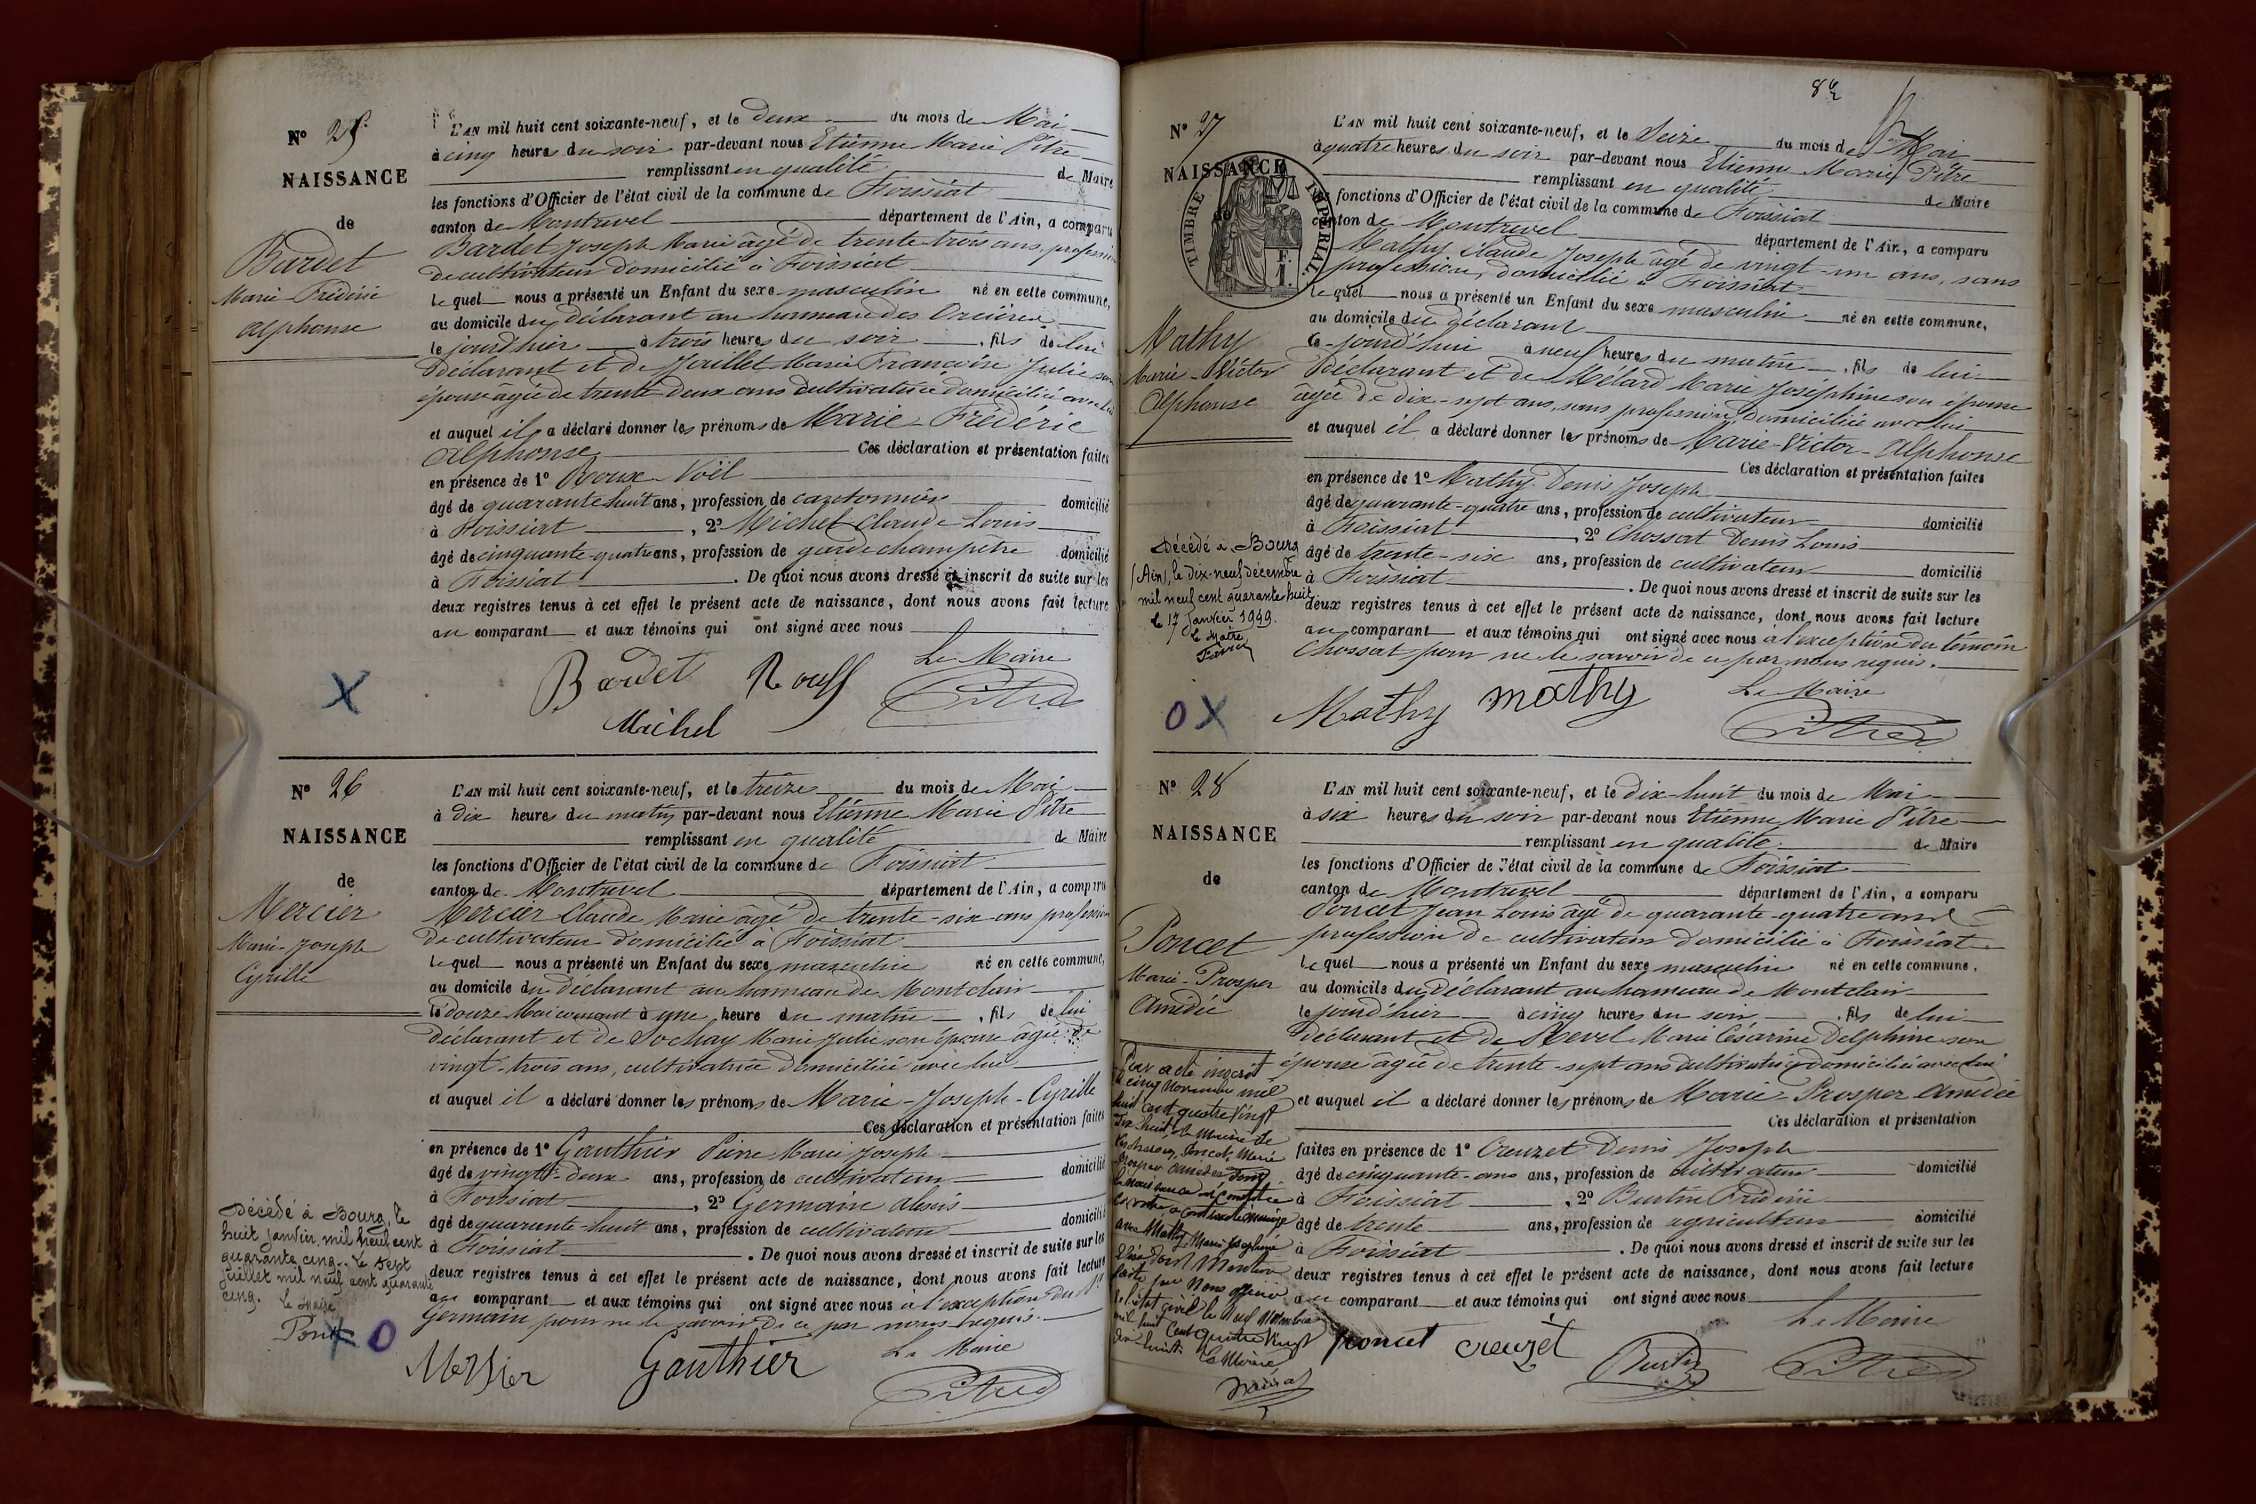 Nº 25
NAISSANCE
de
Bardet
Marie-Frédéric
Alphonse
L'AN mil huit cent soixante-neuf, et le deux du mois de Mai
à cinq heures du soir par-devant nous Etienne Marie Pitre
remplissant en qualité de Maire
les fonctions d'Officier de l'état civil de la commune de Foissiat
canton de Montrevel département de l'Ain, a comparu
Bardet Joseph Marie âgé de trente trois ans, profession
de cultivateur domicilié à Foissiat
le quel nous a présenté un Enfant du sexe masculin né en cette commune,
au domicile du déclarant au hameau des
le jourd'hier à trois heures du soir, fils de lui
déclarant et de Jaillet Marie Françoise Julie son
épouse âgée de trente deux ans cultivatrice domiciliée avec lui
et auquel il a déclaré donner les prénoms de Marie-Frédéric
Alphonse Ces déclaration et présentation faites
en présence de 1º Noël
âgé de quarante huit ans, profession de cantonnier domicilié
à Foissiat, 2º Michel Claude Louis
âgé de cinquante-quatre ans, profession de garde champêtre domicilié
à Foissiat. De quoi nous avons dressé et inscrit de suite sur les
deux registres tenus à cet effet le présent acte de naissance, dont nous avons fait lecture
au comparant et aux témoins qui ont signé avec nous
Le Maire
Bardet
Michel
Pitre
X
Nº 26
NAISSANCE
de
Mercier
Marie-Joseph
Cyrille
L'AN mil huit cent soixante-neuf, et le treize du mois de Mai
à dix heures du matin par-devant nous Etienne Marie Pitre
remplissant en qualité de Maire
les fonctions d'Officier de l'état civil de la commune de Foissiat
canton de Montrevel département de l'Ain, a comparu
Mercier Claude Marie âgé de trente-six ans profession
de cultivateur domicilié à Foissiat
le quel nous a présenté un Enfant du sexe masculin né en cette commune,
au domicile du déclarant au hameau de Montclair
le douze Mai courant à une heure du matin, fils de lui
déclarant et de Sochay Marie Julie son épouse âgée de
vingt-trois ans, cultivatrice domiciliée avec lui
et auquel il a déclaré donner les prénoms de Marie-Joseph-Cyrille
Ces déclaration et présentation faites
en présence de 1º Gauthier Pierre Marie Joseph
âgé de vingt-deux ans, profession de cultivateur domicilié
à Foissiat, 2º Germain Alexis
âgé de quarante-huit ans, profession de cultivateur domicilié
à Foissiat. De quoi nous avons dressé et inscrit de suite sur les
deux registres tenus à cet effet le présent acte de naissance, dont nous avons fait lecture
au comparant et aux témoins qui ont signé avec nous à l'exception du Sr
Germain pour ne le savoir de ce par nous requis.
Le Maire
Gauthier
Pitre
Décédé à Bourg, le
huit janvier mil neuf cent
quarante cinq. Le sept
juillet mil neuf cent quarante
cinq. Le Maire
X O
82
Nº 27
NAISSANCE
TIMBRE IMPÉRIAL.
F.
1.
Mathy
Marie-Victor
Alphonse
L'AN mil huit cent soixante-neuf, et le Seize du mois de Mai
à quatre heures du soir par-devant nous Etienne Marie Pitre
remplissant en qualité de Maire
les fonctions d'Officier de l'état civil de la commune de Foissiat
canton de Montrevel département de l'Ain, a comparu
Mathy Claude Joseph âgé de vingt-un ans, sans
profession, domicilié à Foissiat
le quel nous a présenté un Enfant du sexe masculin né en cette commune,
au domicile du déclarant
Ce-jourd'hui à neuf heures du matin, fils de lui
Déclarant et de Mélard Marie Joséphine son épouse
âgée de dix-sept ans, sans profession domiciliée avec lui
et auquel il a déclaré donner les prénoms de Marie-Victor-Alphonse
Ces déclaration et présentation faites
en présence de 1º Mathy Denis Joseph
âgé de quarante-quatre ans, profession de cultivateur domicilié
à Foissiat, 2º Chossat Denis Louis
âgé de trente-six ans, profession de cultivateur domicilié
à Foissiat. De quoi nous avons dressé et inscrit de suite sur les
deux registres tenus à cet effet le présent acte de naissance, dont nous avons fait lecture
au comparant et aux témoins qui ont signé avec nous à l'exception du témoin
Chossat pour ne le savoir de ce par nous requis.
Le Maire
Mathy mathy
Pitre
Décédé à Bourg
(Ain), le dix-neuf décembre
mil neuf cent quarante huit
le 17 Janvier 1949.
Le Maire
O X
Nº 28
NAISSANCE
de
Poncet
Marie-Prosper
Amédée
L'AN mil huit cent soixante-neuf, et le dix-huit du mois de Mai
à six heures du soir par-devant nous Etienne Marie Pitre
remplissant en qualité de Maire
les fonctions d'Officier de l'état civil de la commune de Foissiat
canton de Montrevel département de l'Ain, a comparu
Poncet Jean Louis âgé de quarante-quatre ans
profession de cultivateur domicilié à Foissiat
le quel nous a présenté un Enfant du sexe masculin né en cette commune,
au domicile du Déclarant au hameau de Montclair
le jourd'hier à cinq heures du soir, fils de lui
déclarant et de Revel Marie Césarine Delphine son
épouse âgée de trente-sept ans cultivatrice domiciliée avec lui
et auquel il a déclaré donner les prénoms de Marie-Prosper Amédée
Ces déclaration et présentation
faites en présence de 1º Creuzet Denis Joseph
âgé de cinquante-ans ans, profession de cultivateur domicilié
à Foissiat, 2º Burtin Frédéric
âgé de trente ans, profession de agriculteur domicilié
à Foissiat. De quoi nous avons dressé et inscrit de suite sur les
deux registres tenus à cet effet le présent acte de naissance, dont nous avons fait lecture
au comparant et aux témoins qui ont signé avec nous
Le Maire
poncet creuzet
Burtin
Pitre
Par acte inscrit
le cinq novembre mil
huit cent quatre vingt
dix huit, à la Mairie de
Poncet, Marie
Prosper Amédée dont
la naissance est constatée
ci contre, a contracté mariage
avec Mathy, Marie Joséphine
dont Mention
faite par Nous officier
de l'état civil le Neuf Novembre
mil huit Cent quatre vingt
dix huit.
Le Maire